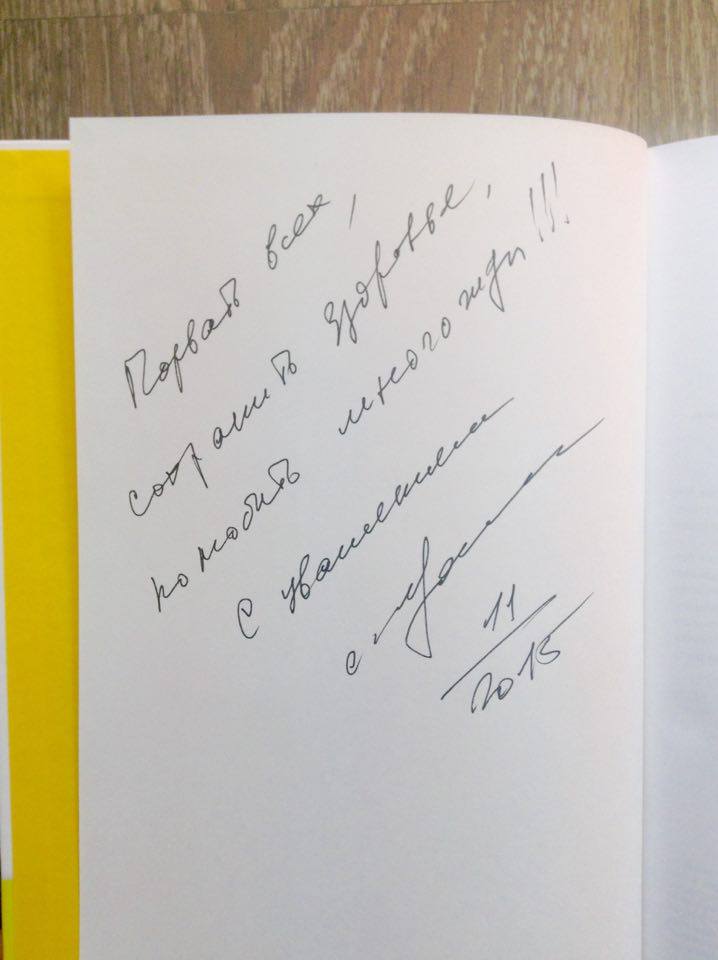 Порвать всех,
сохранить здоровье,
полюбить много жди!!!
С уважением
11
2015